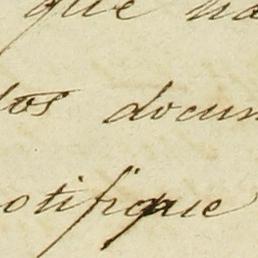 que ha
tos docum
otifique